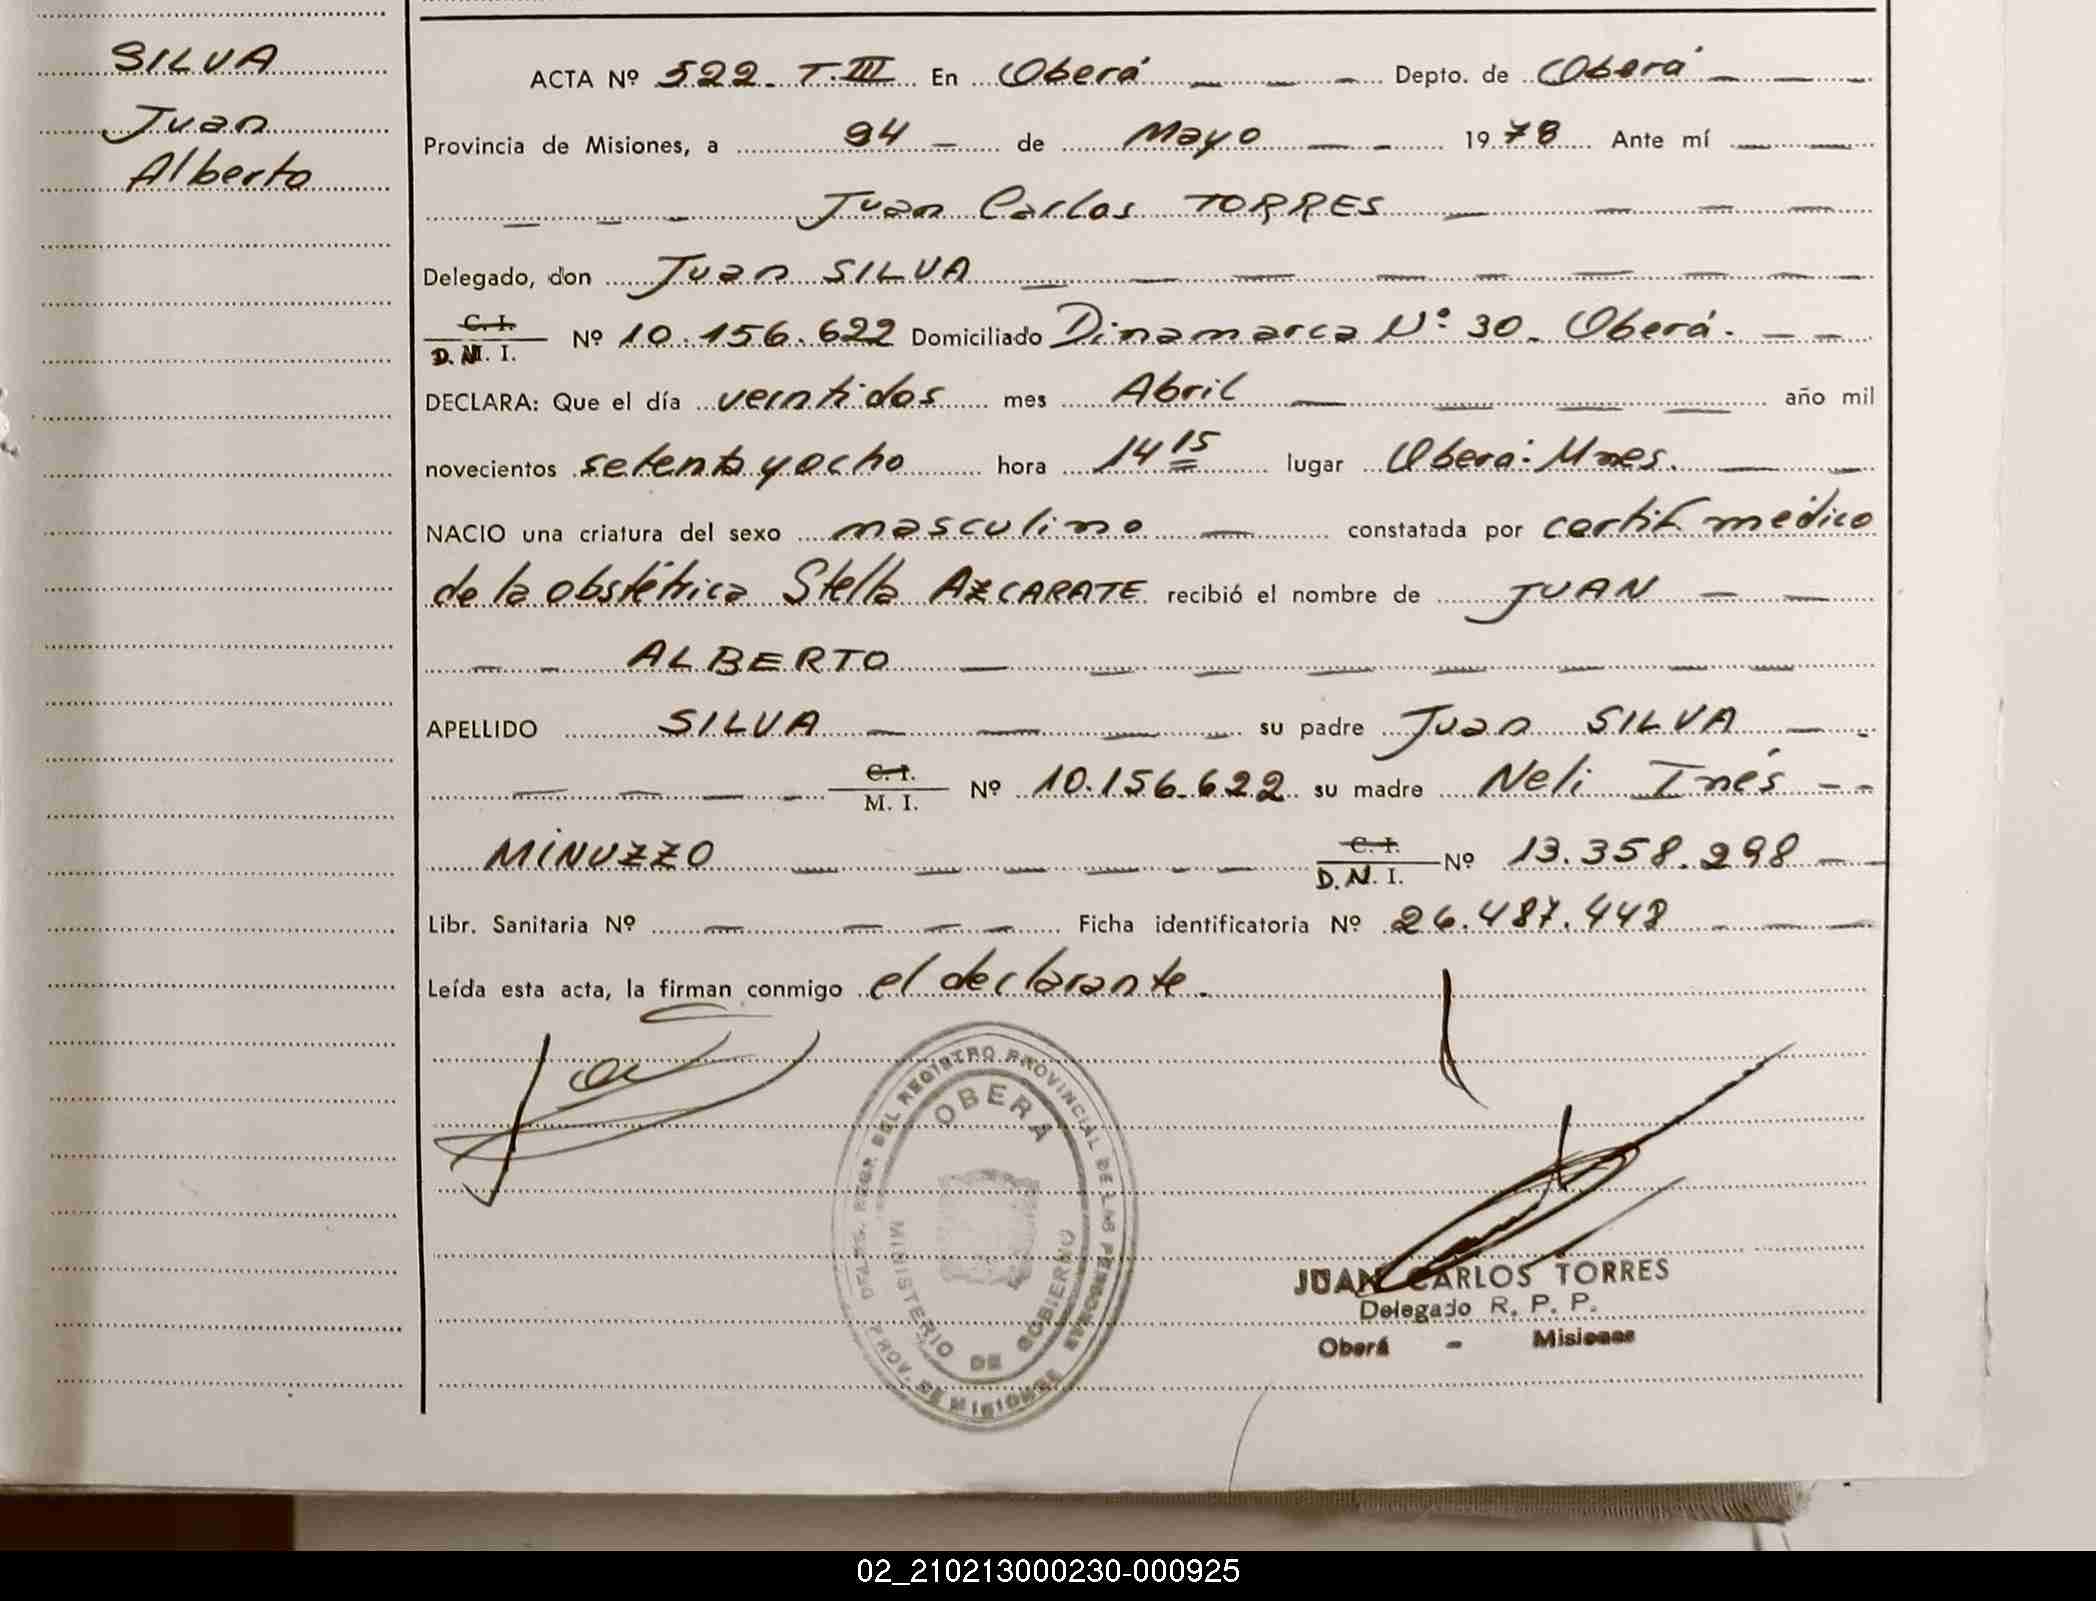 SILVA
Juan
Alberto
ACTA Nº 522. T. III En Oberá Depto. de Oberá
Provincia de Misiones, a 94 de Mayo 1978 Ante mí
Juan Carlos TORRES
Delegado, don Juan SILVA
C. I.
D. N. I. Nº 10.156.622 Domiciliado Dinamarca Nº 30. Oberá.
DECLARA: Que el día veintidos mes Abril año mil
novecientos setenta y ocho hora 14 15 lugar Oberá: Mnes.
NACIO una criatura del sexo masculino constatada por certif. médico
de la obstétrica Stella AZCARATE recibió el nombre de JUAN
ALBERTO
APELLIDO SILVA su padre Juan SILVA
C. I.
M. I. Nº 10.156.622 su madre Neli Inés
MINUZZO C. I.
D. N. I. Nº 13.358.298
Libr. Sanitaria Nº Ficha identificatoria Nº 26.487.448
Leída esta acta, la firman conmigo el declarante.
REGISTRO PROVINCIAL DE LAS PERSONAS
OBERA
MINISTERIO DE GOBIERNO
PROV. DE MISIONES
JUAN CARLOS TORRES
Delegado R. P. P.
Oberá - Misiones
02_210213000230-000925